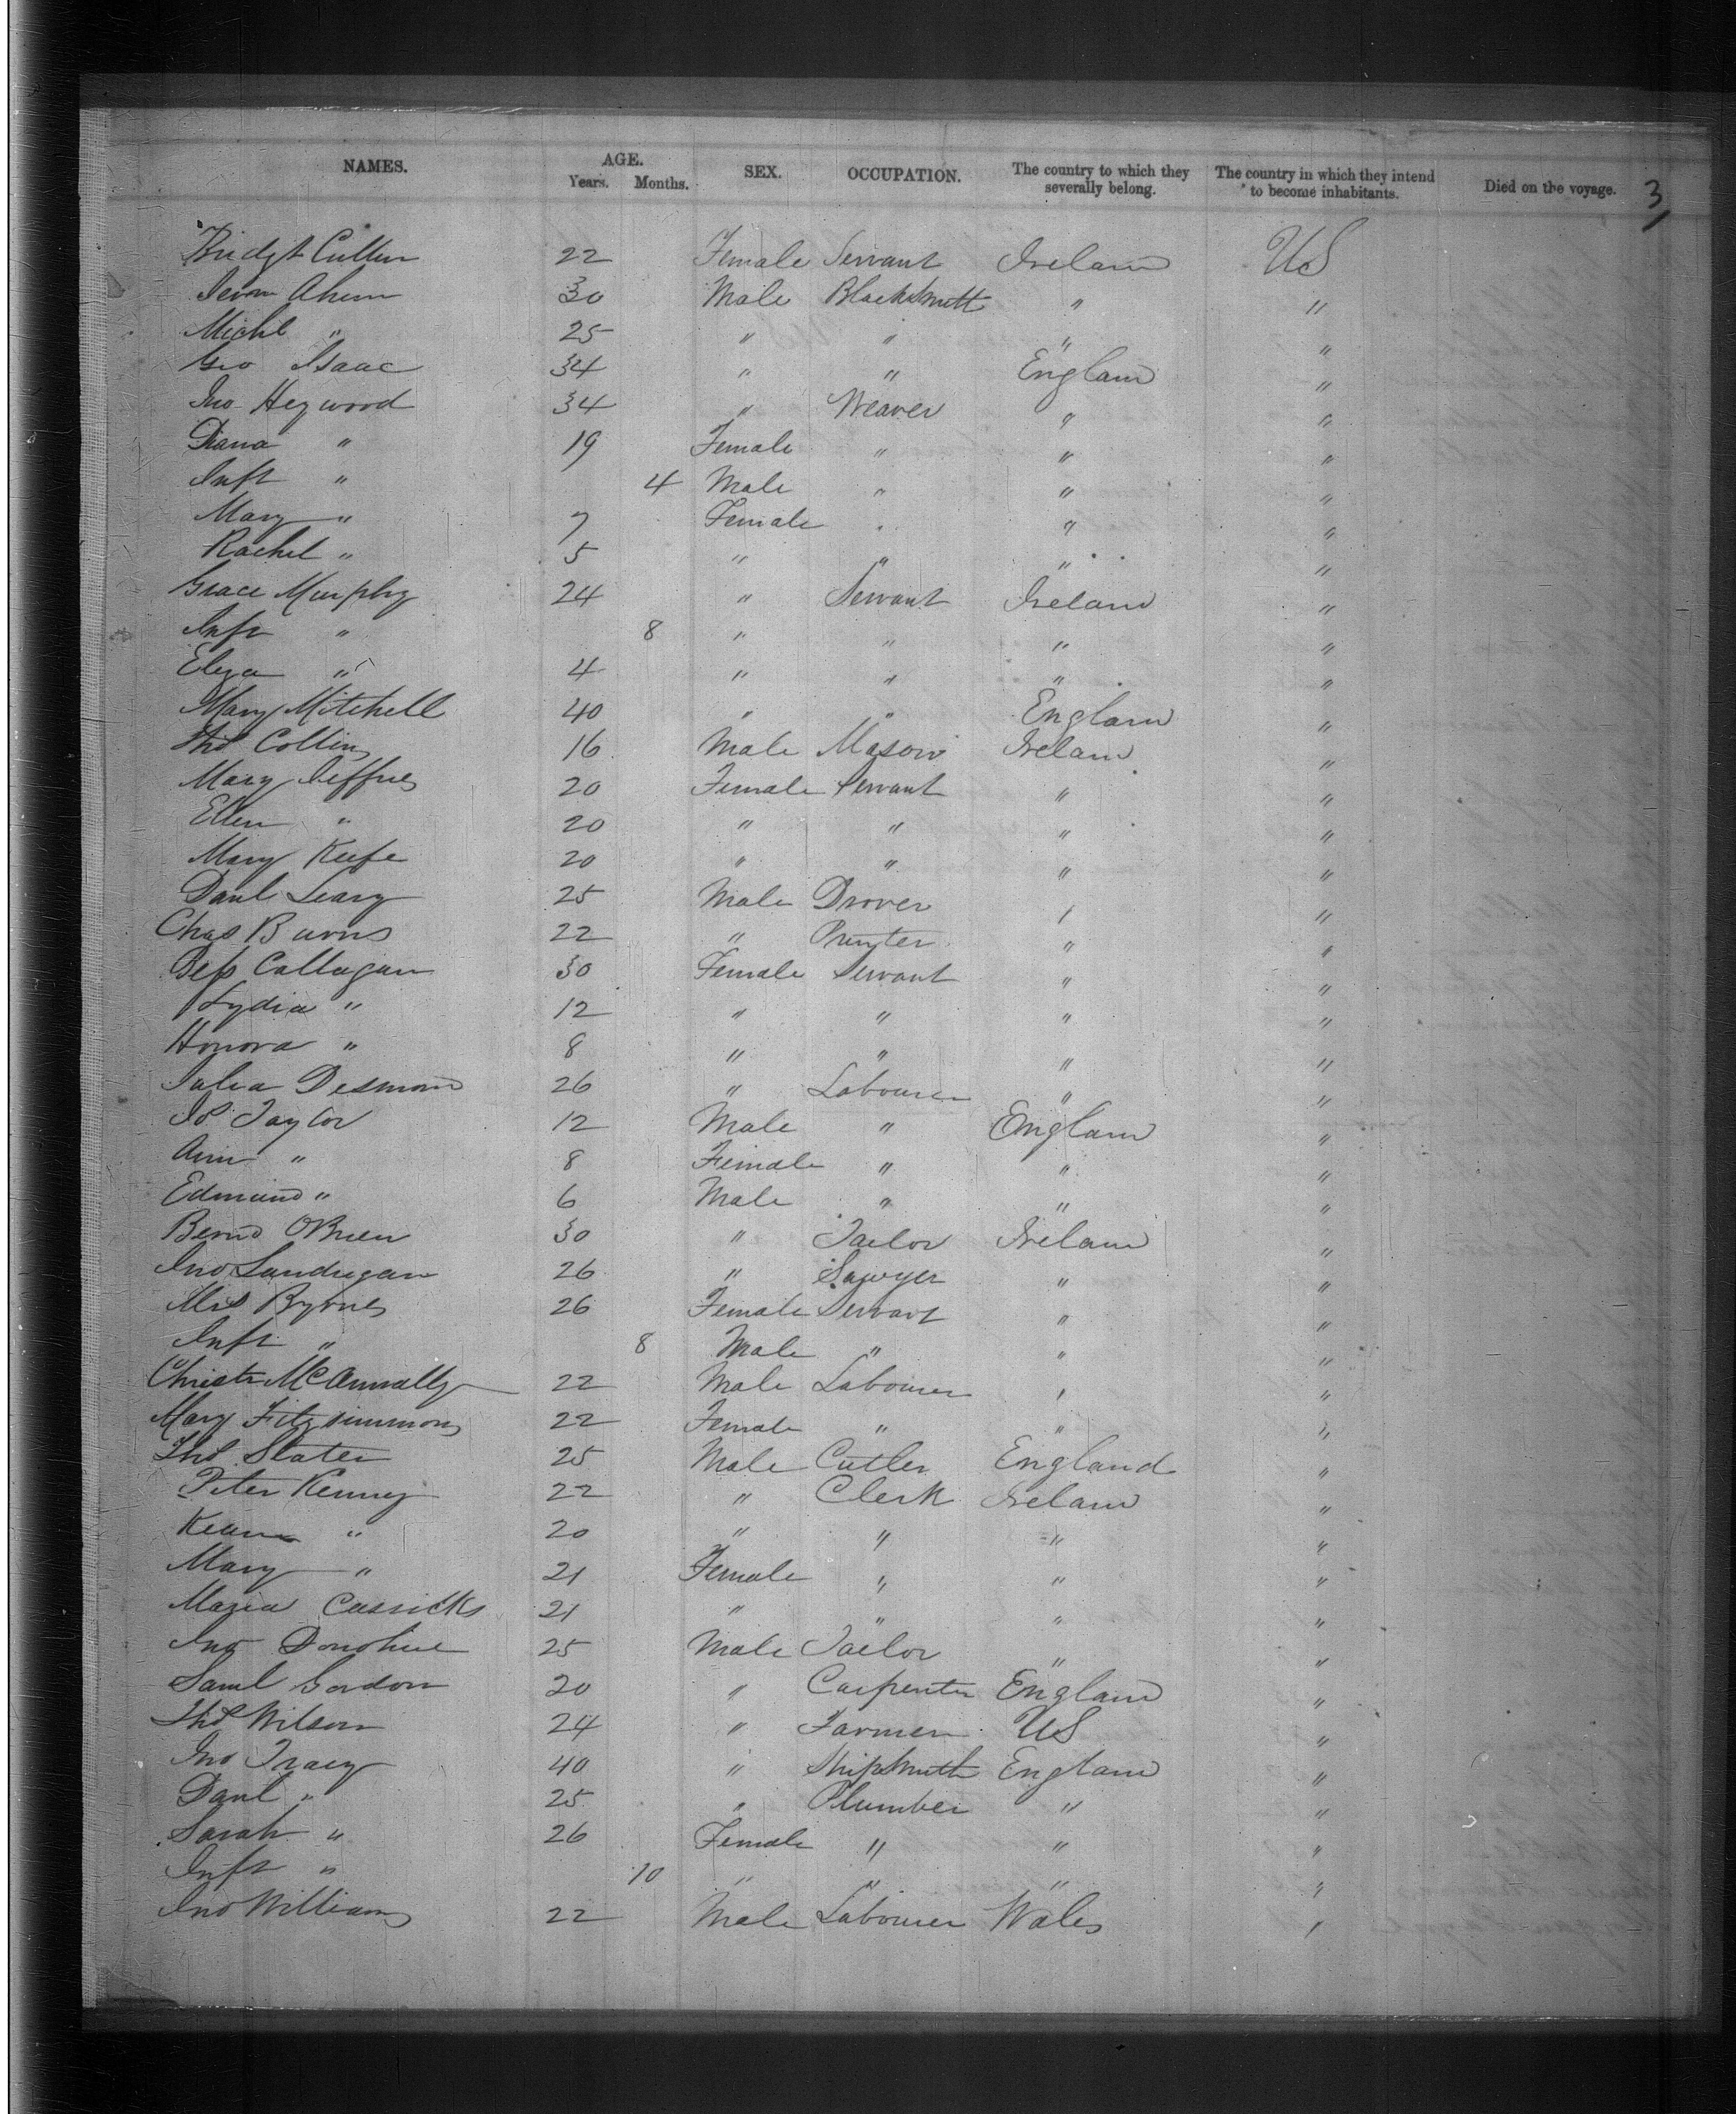 NAMES. AGE. Years. Months. SEX. OCCUPATION. The country to which they severally belong. The country in which they intend to become inhabitants. Died on the voyage. 3
Bridgt Cullen 22 Female Servant Ireland US
Ahern 30 Male Blacksmith " "
Michl " 25 " " " "
Geo Isaac 34 " " England "
Jno Heywood 34 " Weaver " "
Diana " 19 Female " " "
Inft " 4 Male " " "
Mary " 7 Female " " "
Rachel " 5 " " " "
Grace Murphy 24 " Servant Ireland "
Inft " 8 " " " "
Eliza " 4 " " " "
Mary Mitchell 40 " " England "
Thos Collins 16 Male Mason Ireland "
Mary Jeffries 20 Female Servant " "
Ellen " 20 " " " "
Mary Keefe 20 " " " "
Danl Leary 25 Male Drover " "
Chas Burns 22 " Printer " "
Bess Callagan 30 Female Servant " "
Lydia " 12 " " " "
Honora " 8 " " " "
Julia Desmond 26 " Labourer " "
Js Taylor 12 Male " England "
Ann " 8 Female " " "
Edmund " 6 Male " " "
Bernd OBrien 30 " Tailor Ireland "
Jno Landregan 26 " Sawyer " "
Mrs Byrnes 26 Female Servant " "
Inft " 8 Male " " "
Christr McAnnally 22 Male Labourer " "
Mary Fitzsimmons 22 Female " " "
Thos Slater 25 Male Cutler England "
Peter Kenney 22 " Clerk Ireland "
Kearn " 20 " " " "
Mary " 21 Female " " "
Maria Cusicks 21 " " " "
Jno Donohue 25 Male Tailor " "
Saml Gordon 20 " Carpenter England "
Thos Wilson 24 " Farmer US "
Jno Tracy 40 " Shipsmith England "
Danl " 25 " Plumber " "
Sarah " 26 Female " " "
Inft " 10 " " " "
Jno Williams 22 Male Labourer Wales "